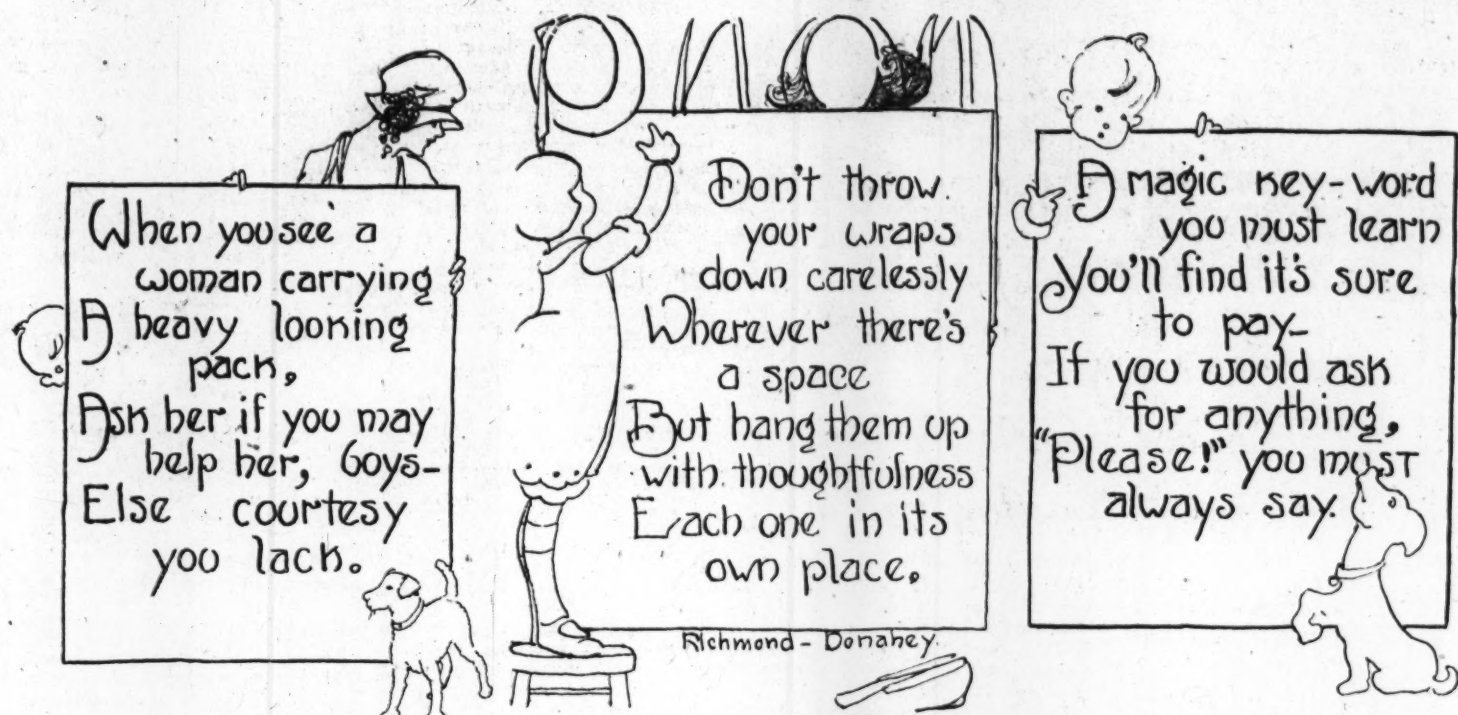 When you see a
woman carrying
A heavy looking
pack,
Ask her if you may
help her, Boys-
Else courtesy
you lack.
Don't throw
your wraps
down carelessly
Wherever there's
a space
But hang them up
with thoughtfulness
Each one in its
own place.
Richmond - Donahey.
A magic key-word
you must learn
You'll find it's sure
to pay-
If you would ask
for anything,
"Please!" you must
always say.